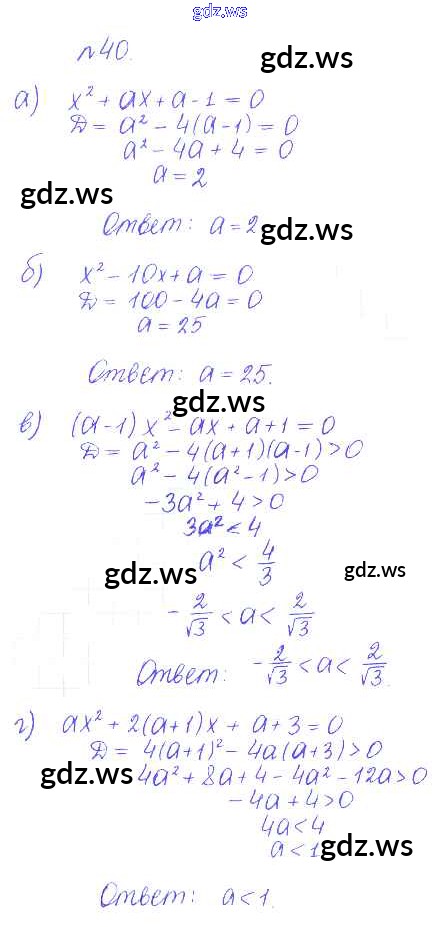 gdz.ws
№40.
gdz.ws
а) x² + ax + a - 1 = 0
D = a² - 4(a-1) = 0
a² - 4a + 4 = 0
a = 2
gdz.ws
Ответ: a = 2
gdz.ws
б) x² - 10x + a = 0
D = 100 - 4a = 0
a = 25
Ответ: a = 25.
gdz.ws
в) (a-1)x² - ax + a + 1 = 0
D = a² - 4(a+1)(a-1) > 0
a² - 4(a² - 1) > 0
-3a² + 4 > 0
3a² < 4
a² < 4/3
gdz.ws
gdz.ws
-2/√3 < a < 2/√3
Ответ: -2/√3 < a < 2/√3.
г) ax² + 2(a+1)x + a + 3 = 0
D = 4(a+1)² - 4a(a+3) > 0
gdz.ws
4a² + 8a + 4 - 4a² - 12a > 0
-4a + 4 > 0
4a < 4
a < 1
gdz.ws
Ответ: a < 1.